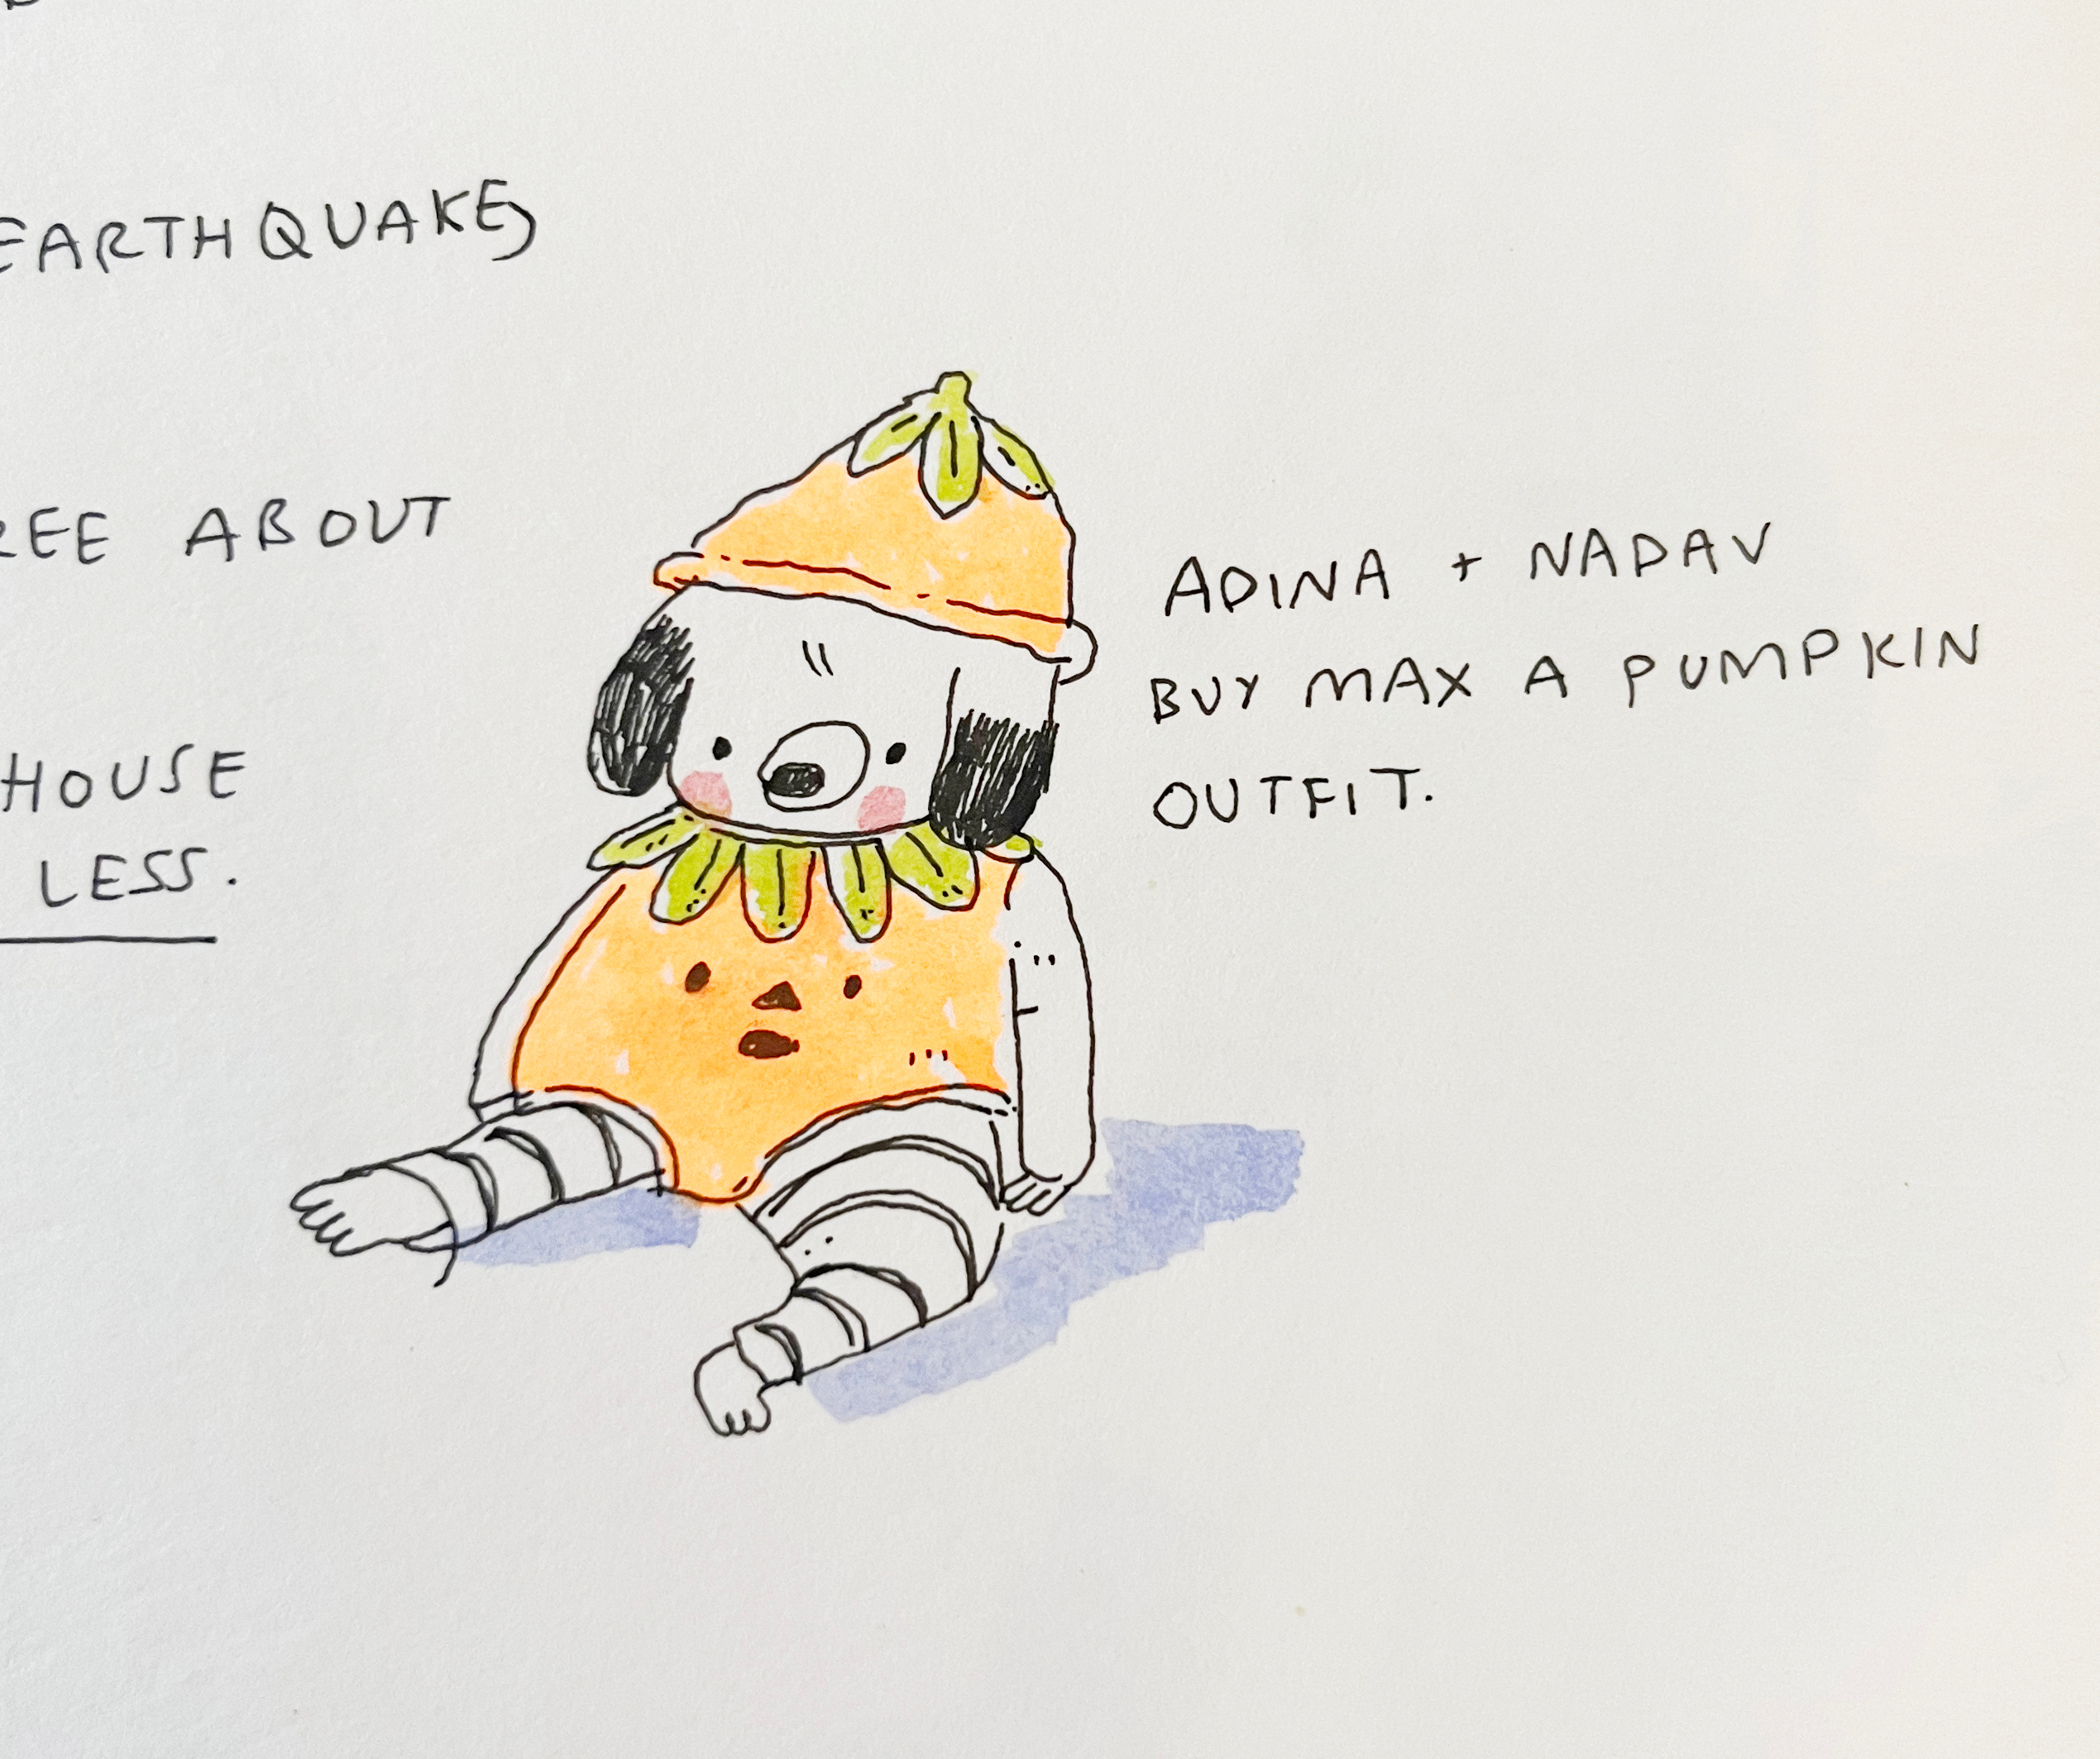 EARTHQUAKE,
ABOUT
HOUSE
LESS.
ADINA + NADAV
BUY MAX A PUMPKIN
OUTFIT.